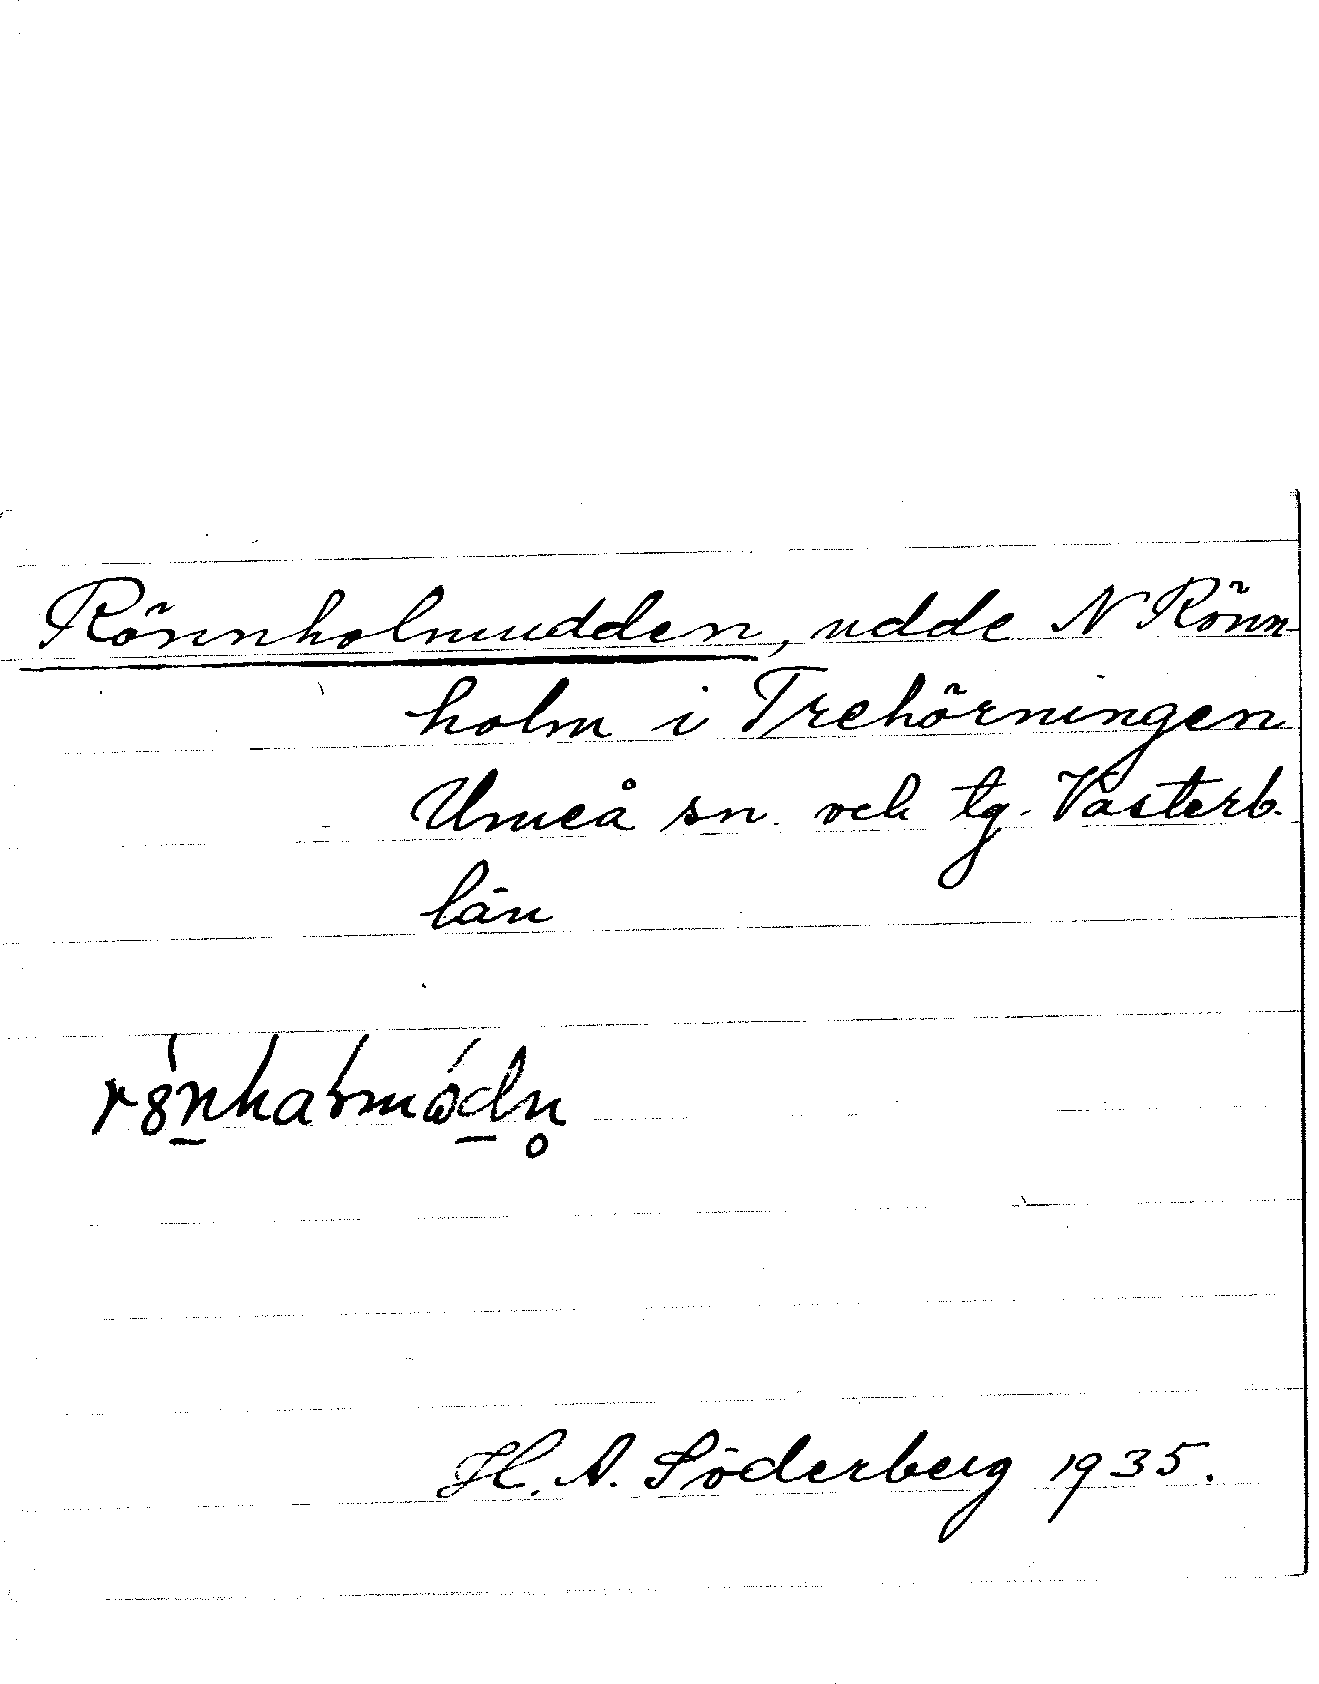 Rönnholmudden, udde N Rönn
holm i Trehörningen
Umeå sn. och tg. Västerb.
län
H. A. Söderberg 1935.